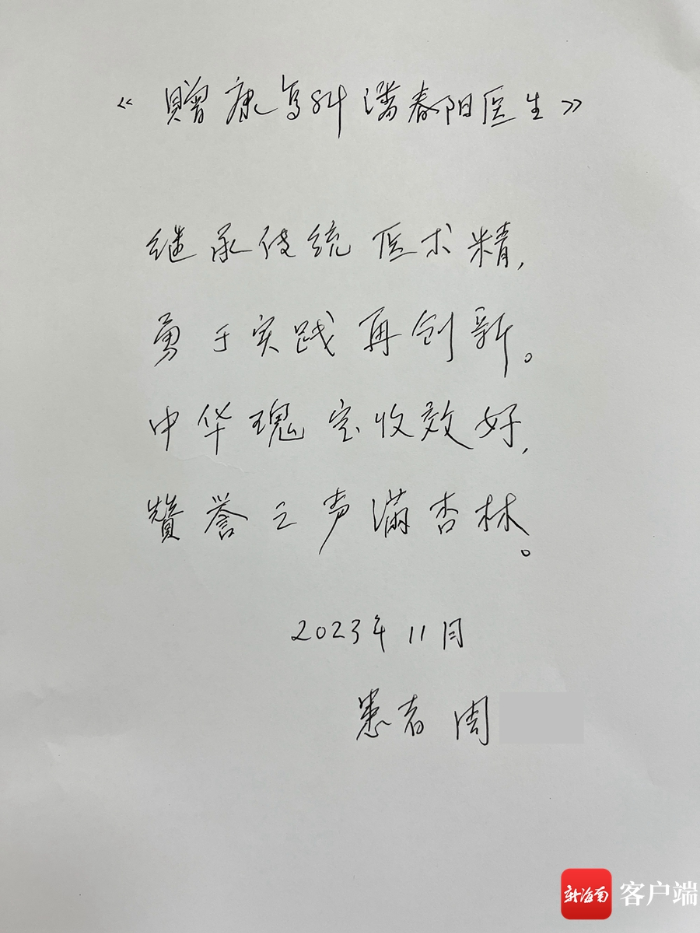 《赠康复科潘春阳医生》
继承传统医术精，
勇于实践再创新。
中华瑰宝收效好，
赞誉之声满杏林。
2023年11月
患者 周
新海南 客户端